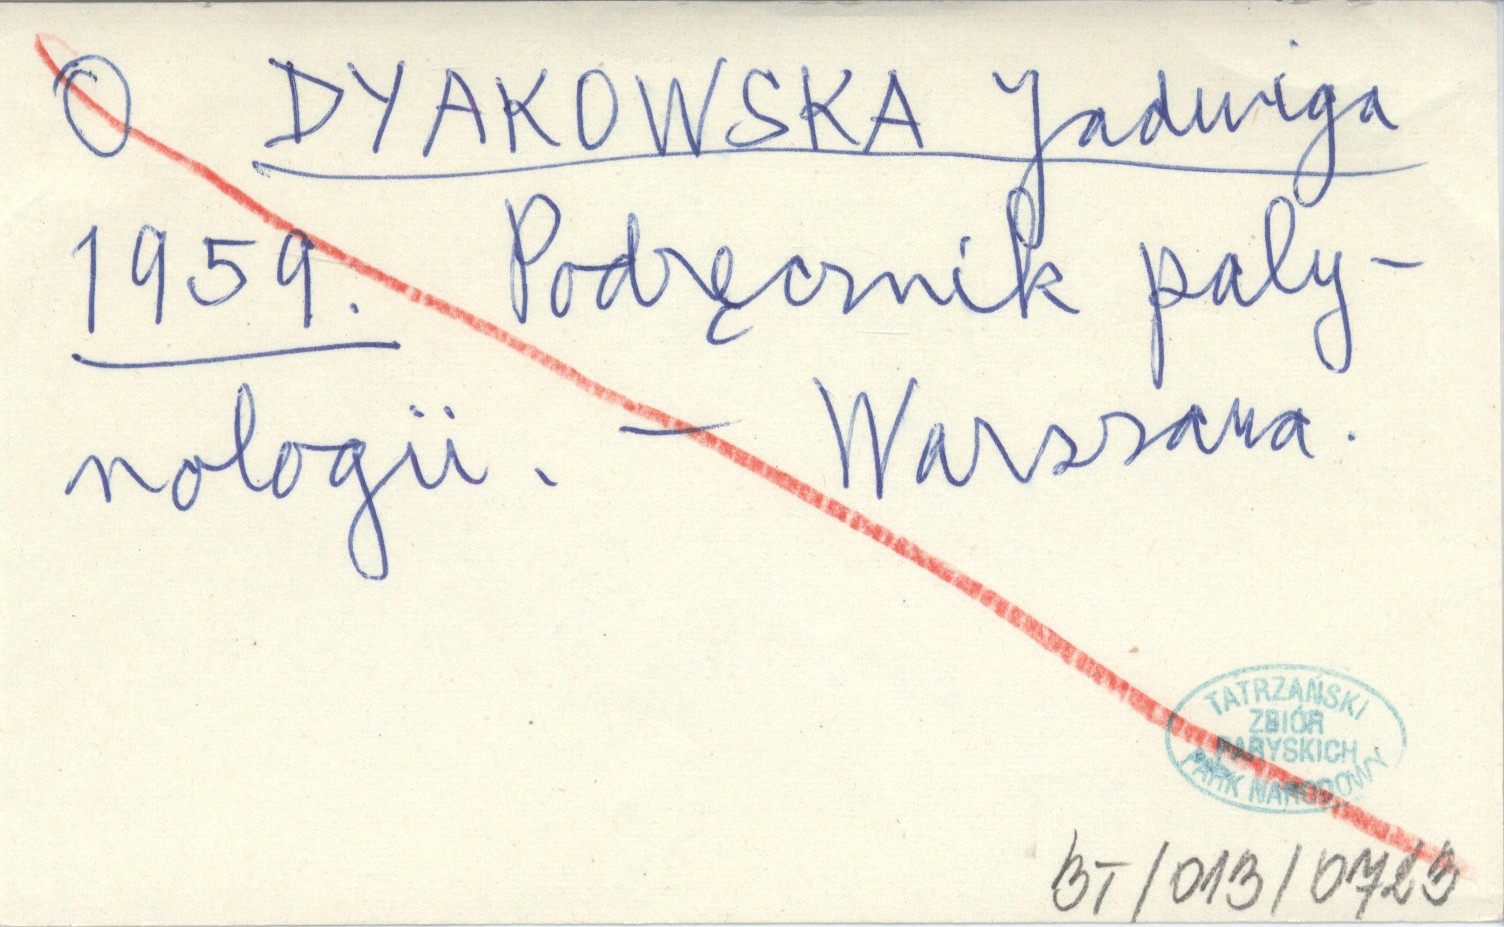 O DYAKOWSKA Jadwiga
1959. Podręcznik paly-
nologii. — Warszawa.
TATRZAŃSKI
ZBIÓR
PARYSKICH
PARK NARODOWY
BT/013/0723